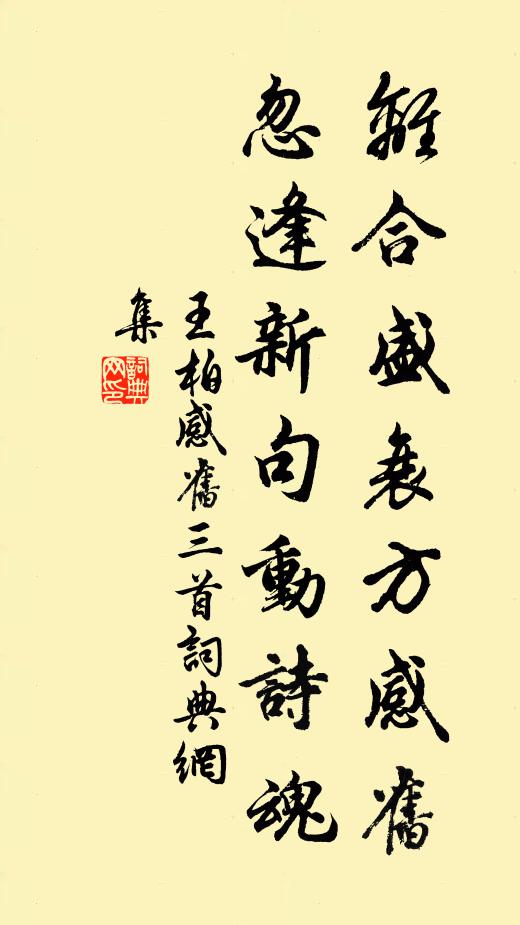 離合盛衰方感舊
忽逢新句動詩魂
王柏感舊三首詞典網
集
詞典
网印